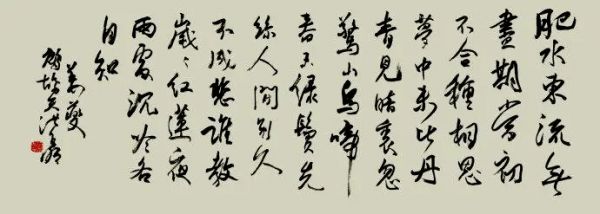 肥水東流無
盡期當初
不合種相思
夢中未比丹
青見暗裏忽
驚山鳥啼
春未綠鬢先
絲人間別久
不成悲誰教
歲々紅蓮夜
兩處沉吟各
自知
姜夔